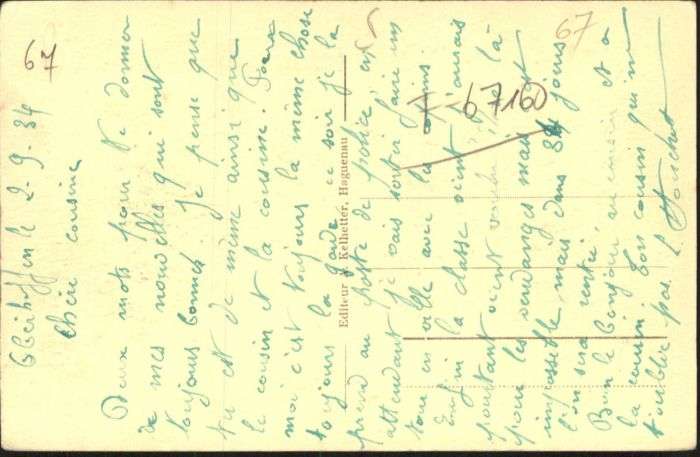 67
67
F-67160
Oberhoffen le 2-9-34
Chère cousine
Deux mots pour te donner
de mes nouvelles qui sont
toujours bonnes je pense que
tu et de même ainsi que
le cousin et la cousine. Pour
moi c'est toujours la même chose
toujours la garde ce soir je la
prend au poste de police, en
attendant je vais sortir faire un
tour en ville avec les copains
Enfin la classe vient j'aurais
pourtant être là
pour les vendanges mais
impossible mais dans jours
l'on sera rentré.
Bon le bonjour au cousin et a
la cousine, ton cousin qui ne
t'oublie pas.
Editeur Kelhetter, Haguenau